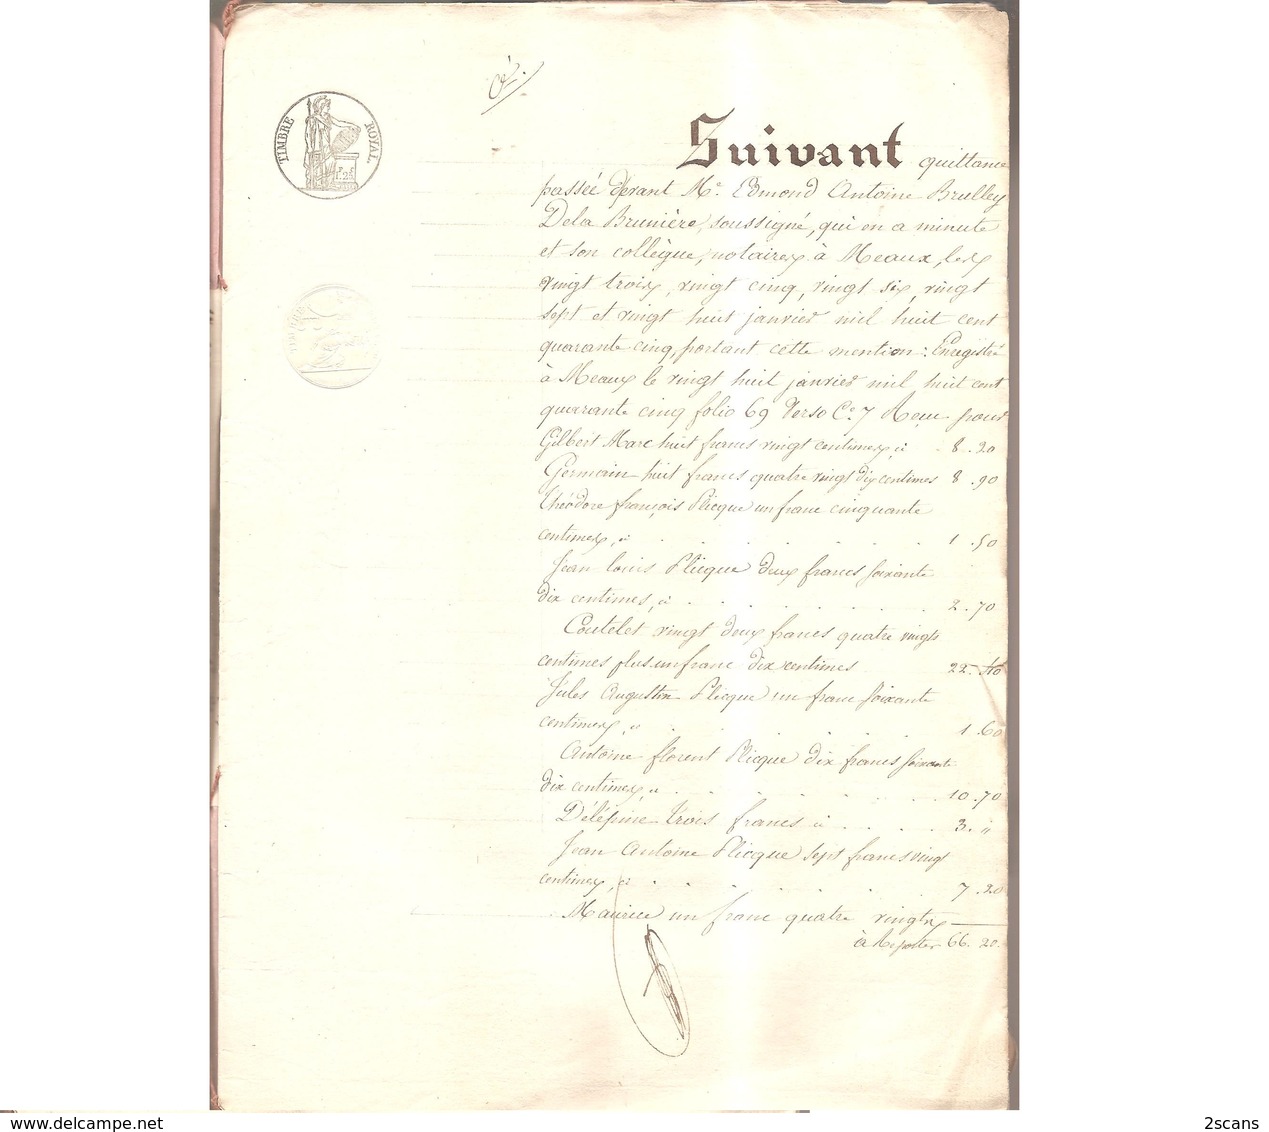 TIMBRE ROYAL
Suivant quittance
passée devant Me. Edmond Antoine Brulley
Dela Brunière, soussigné, qui en a minute
et son collègue, notaires à Meaux, les
vingt trois, vingt cinq, vingt six, vingt
sept et vingt huit janvier mil huit cent
quarante cinq, portant cette mention: Enregistré
à Meaux le vingt huit janvier mil huit cent
quarante cinq folio 69 Verso Ce. 7 Reçu pour
Gilbert Marc huit francs vingt centimes, ci 8.20
Germain huit francs quatre vingt dix centimes 8.90
Théodore françois Plicque un franc cinquante
centimes, ci 1.50
Jean louis Plicque deux francs soixante
dix centimes, ci 2.70
Coutelet vingt deux francs quatre vingts
centimes plus un franc dix centimes 22.40
Jules Augustin Plicque un franc soixante
centimes, ci 1.60
Antoine florent Plicque dix francs soixante
dix centimes, ci 10.70
Délépine trois francs ci 3."
Jean Antoine Plicque sept francs vingt
centimes, ci 7.20
Maurice un franc quatre vingts
à Reporter 66.20.
www.delcampe.net
2scans